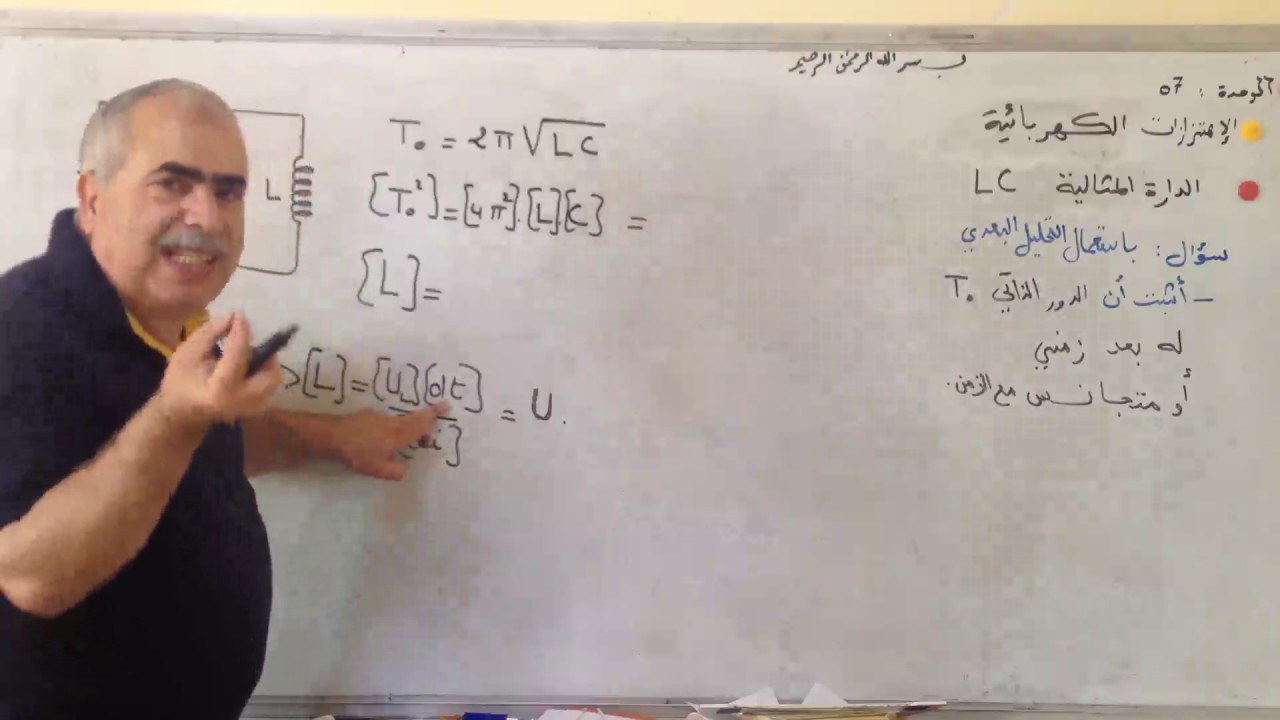 بسم الله الرحمن الرحيم
الوحدة : 07
الإهتزازات الكهربائية
الدارة المثالية LC
سؤال : باستعمال التحليل البعدي
- أثبت أن الدور الذاتي T₀
له بعد زمني
أو متجانس مع الزمن.
L
T₀ = 2π√LC
[T₀²] = [4π²].[L][C] =
[L] =
>[L] = [U_L][dt] / [di] = U.